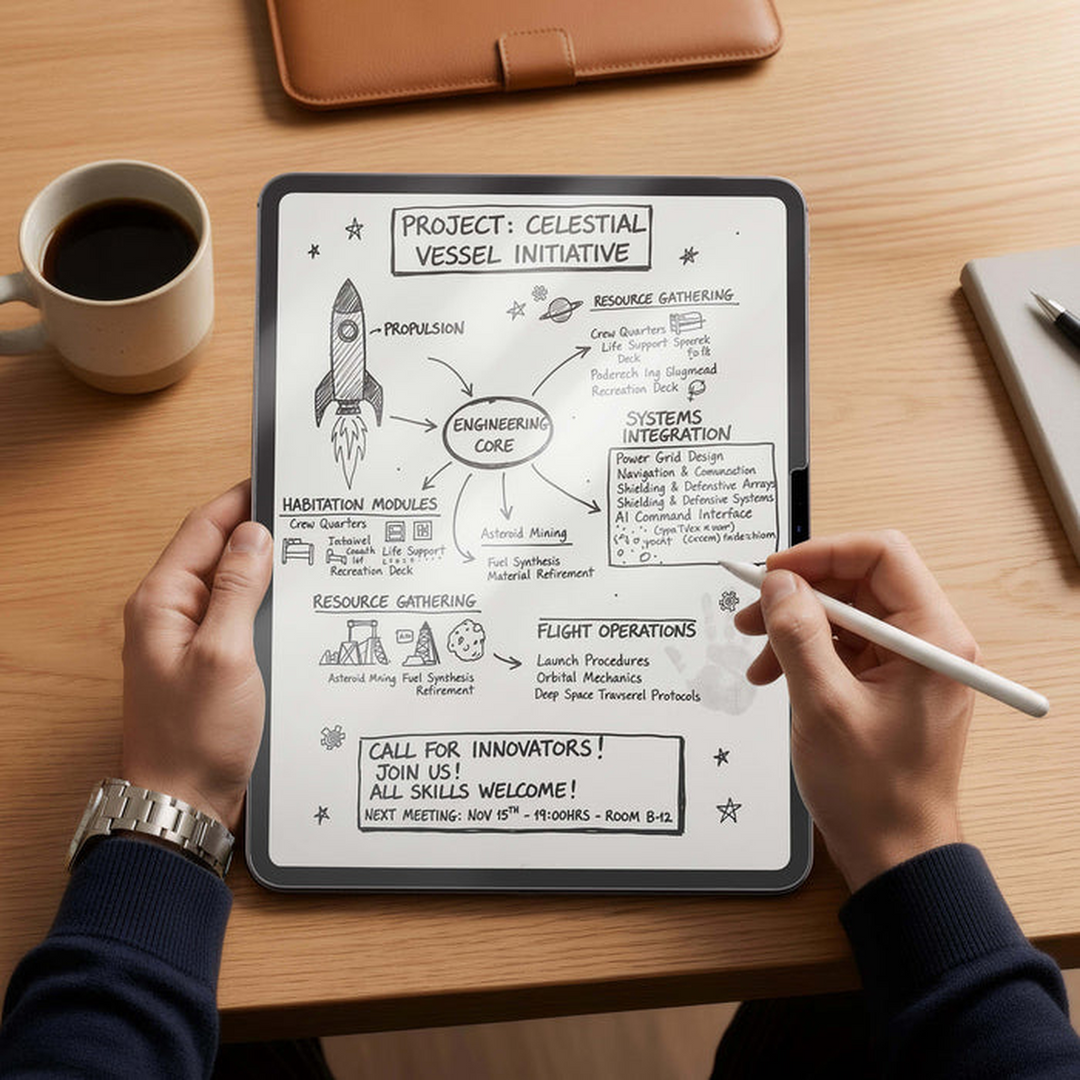 PROJECT: CELESTIAL
VESSEL INITIATIVE
PROPULSION
RESOURCE GATHERING
Crew Quarters
Life Support
Deck
Recreation Deck
ENGINEERING
CORE
SYSTEMS
INTEGRATION
Power Grid Design
Navigation &
Shielding & Defenstive Arrays
Shielding & Defensive Systems
AI Command Interface
HABITATION MODULES
Crew Quarters
Life Support
Recreation Deck
Asteroid Mining
Fuel Synthesis
Material Refirement
RESOURCE GATHERING
Asteroid Mning Fuel Synthesis
Refirement
FLIGHT OPERATIONS
Launch Procedures
Orbital Mechanics
Deep Space Travserel Protocols
CALL FOR INNOVATORS!
JOIN US!
ALL SKILLS WELCOME!
NEXT MEETING: NOV 15TH - 19:00HRS - ROOM B-12